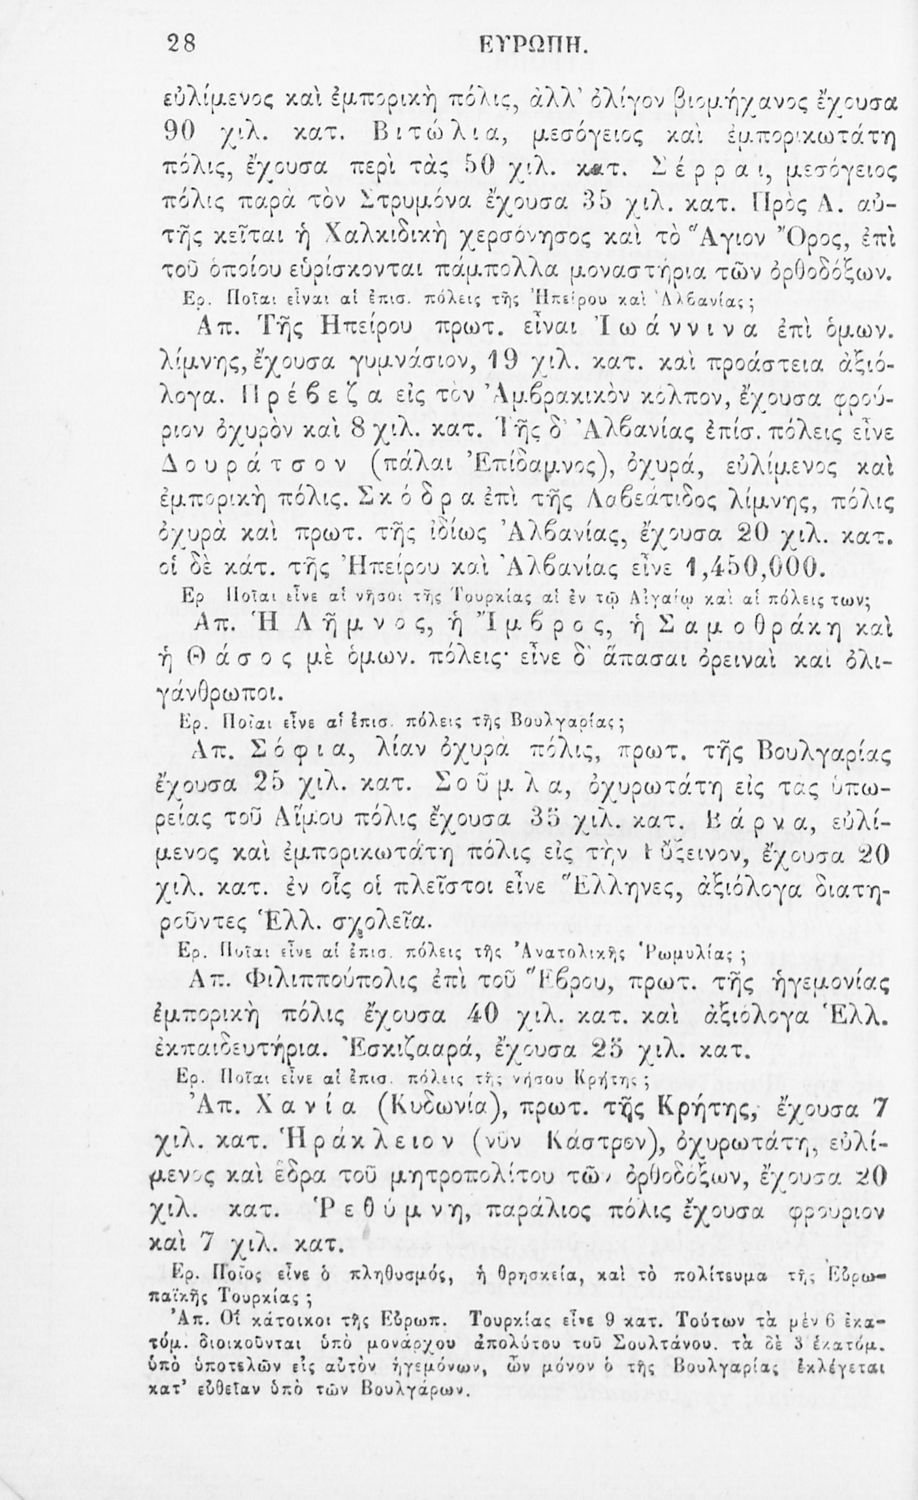 28 ΕΥΡΩΠΗ.
εὐλίμενος καὶ ἐμπορικὴ πόλις, ἀλλ' ὀλίγον βιομήχανος ἔχουσα
90 χιλ. κατ. Βιτώλια, μεσόγειος καὶ ἐμπορικωτάτη
πόλις, ἔχουσα περὶ τὰς 50 χιλ. κατ. Σέρραι, μεσόγειος
πόλις παρὰ τὸν Στρυμόνα ἔχουσα 35 χιλ. κατ. Πρὸς Δ. αὐ-
τῆς κεῖται ἡ Χαλκιδικὴ χερσόνησος καὶ τὸ Ἅγιον Ὄρος, ἐπὶ
τοῦ ὁποίου εὑρίσκονται πάμπολλα μοναστήρια τῶν ὀρθοδόξων.
Ερ. Ποῖαι εἶναι αἱ ἐπισ. πόλεις τῆς Ἠπείρου καὶ Ἀλβανίας;
Απ. Τῆς Ηπείρου πρωτ. εἶναι Ἰωάννινα ἐπὶ ὁμων.
λίμνης, ἔχουσα γυμνάσιον, 19 χιλ. κατ. καὶ προάστεια ἀξιό-
λογα. Πρέβεζα εἰς τὸν Ἀμβρακικὸν κόλπον, ἔχουσα φρού-
ριον ὀχυρὸν καὶ 8 χιλ. κατ. Τῆς δ' Ἀλβανίας ἐπίσ. πόλεις εἶνε
Δουράτσον (πάλαι Ἐπίδαμνος), ὀχυρά, εὐλίμενος καὶ
ἐμπορικὴ πόλις. Σκόδρα ἐπὶ τῆς Λαβεάτιδος λίμνης, πόλις
ὀχυρὰ καὶ πρωτ. τῆς ἰδίως Ἀλβανίας, ἔχουσα 20 χιλ. κατ.
οἱ δὲ κάτ. τῆς Ἠπείρου καὶ Ἀλβανίας εἶνε 1,450,000.
Ερ Ποῖαι εἶνε αἱ νῆσοι τῆς Τουρκίας αἱ ἐν τῷ Αἰγαίῳ καὶ αἱ πόλεις των;
Απ. Ἡ Λῆμνος, ἡ Ἴμβρος, ἡ Σαμοθράκη καὶ
ἡ Θάσος μὲ ὁμων. πόλεις· εἶνε δ' ἅπασαι ὀρειναὶ καὶ ὀλι-
γάνθρωποι.
Ερ. Ποῖαι εἶνε αἱ ἐπισ. πόλεις τῆς Βουλγαρίας;
Απ. Σόφια, λίαν ὀχυρὰ πόλις, πρωτ. τῆς Βουλγαρίας
ἔχουσα 25 χιλ. κατ. Σοῦμλα, ὀχυρωτάτη εἰς τὰς ὑπω-
ρείας τοῦ Αἵμου πόλις ἔχουσα 35 χιλ. κατ. Βάρνα, εὐλί-
μενος καὶ ἐμπορικωτάτη πόλις εἰς τὴν Εὔξεινον, ἔχουσα 20
χιλ. κατ. ἐν οἷς οἱ πλεῖστοι εἶνε Ἕλληνες, ἀξιόλογα διατη-
ροῦντες Ἑλλ. σχολεῖα.
Ερ. Ποῖαι εἶνε αἱ ἐπισ. πόλεις τῆς Ἀνατολικῆς Ῥωμυλίας;
Απ. Φιλιππούπολις ἐπὶ τοῦ Ἕβρου, πρωτ. τῆς ἡγεμονίας
ἐμπορικὴ πόλις ἔχουσα 40 χιλ. κατ. καὶ ἀξιόλογα Ἑλλ.
ἐκπαιδευτήρια. Ἐσκιζααρά, ἔχουσα 25 χιλ. κατ.
Ερ. Ποῖαι εἶνε αἱ ἐπισ. πόλεις τῆς νήσου Κρήτης;
Ἀπ. Χανία (Κυδωνία), πρωτ. τῆς Κρήτης, ἔχουσα 7
χιλ. κατ. Ἡράκλειον (νῦν Κάστρον), ὀχυρωτάτη, εὐλί-
μενος καὶ ἕδρα τοῦ μητροπολίτου τῶν ὀρθοδόξων, ἔχουσα 20
χιλ. κατ. Ῥεθύμνη, παράλιος πόλις ἔχουσα φρούριον
καὶ 7 χιλ. κατ.
Ερ. Ποῖος εἶνε ὁ πληθυσμός, ἡ θρησκεία, καὶ τὸ πολίτευμα τῆς Εὐρω-
παϊκῆς Τουρκίας;
Ἀπ. Οἱ κάτοικοι τῆς Εὐρωπ. Τουρκίας εἶνε 9 κατ. Τούτων τὰ μὲν 6 ἑκα-
τόμ. διοικοῦνται ὑπὸ μονάρχου ἀπολύτου τοῦ Σουλτάνου. τὰ δὲ 3 ἑκατόμ.
ὑπὸ ὑποτελῶν εἰς αὐτὸν ἡγεμόνων, ὧν μόνον ὁ τῆς Βουλγαρίας ἐκλέγεται
κατ' εὐθεῖαν ὑπὸ τῶν Βουλγάρων.